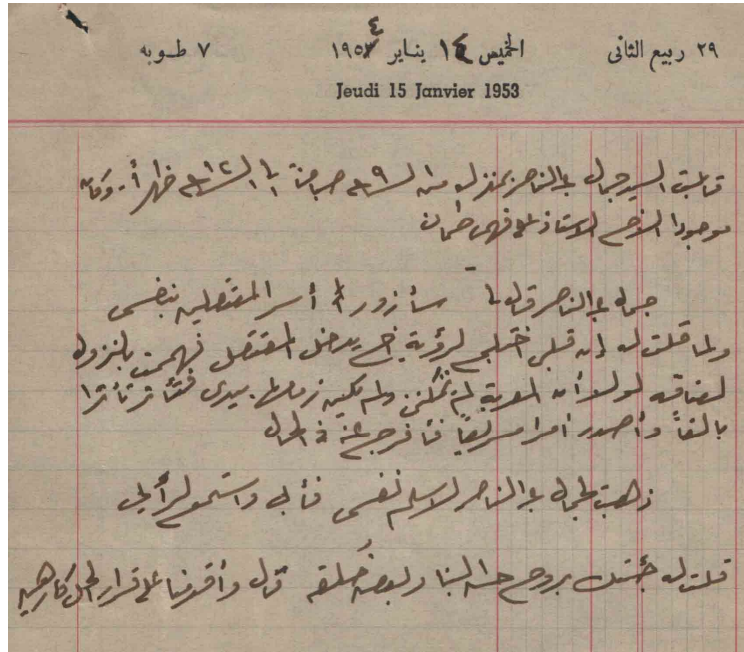 ٢٩ ربيع الثانى الخميس ١٤ يناير ١٩٥٤ ٧ طوبه
Jeudi 15 Janvier 1953
قابلت السيد جمال عبد الناصر بمنزله من الساعة ٩ صباحاً إلى الساعة ١٢ ظهراً. وكان
موجودا الأخ الاستاذ على فهمى طمان
جمال عبد الناصر قال لى سأزور أسر المعتقلين بنفسى
ولما قلت له إن قلبى اختلج لرؤية أخ يدخل المعتقل فهممت بالنزول
لعناقه لولا أن العربة لم تمكنى ولم يكن زمامها بيدى فتأثر تأثرا
بالغاً وأصدر أمرا سريعاً فأفرج عنه فى الحال
ذهبت لجمال عبد الناصر لاسلم نفسى فأبى واستمع لرأيى
قلت له جئتك بروح حسن البنا وبعض خلقه قال وأقدمنا على قرار الحل كارهين